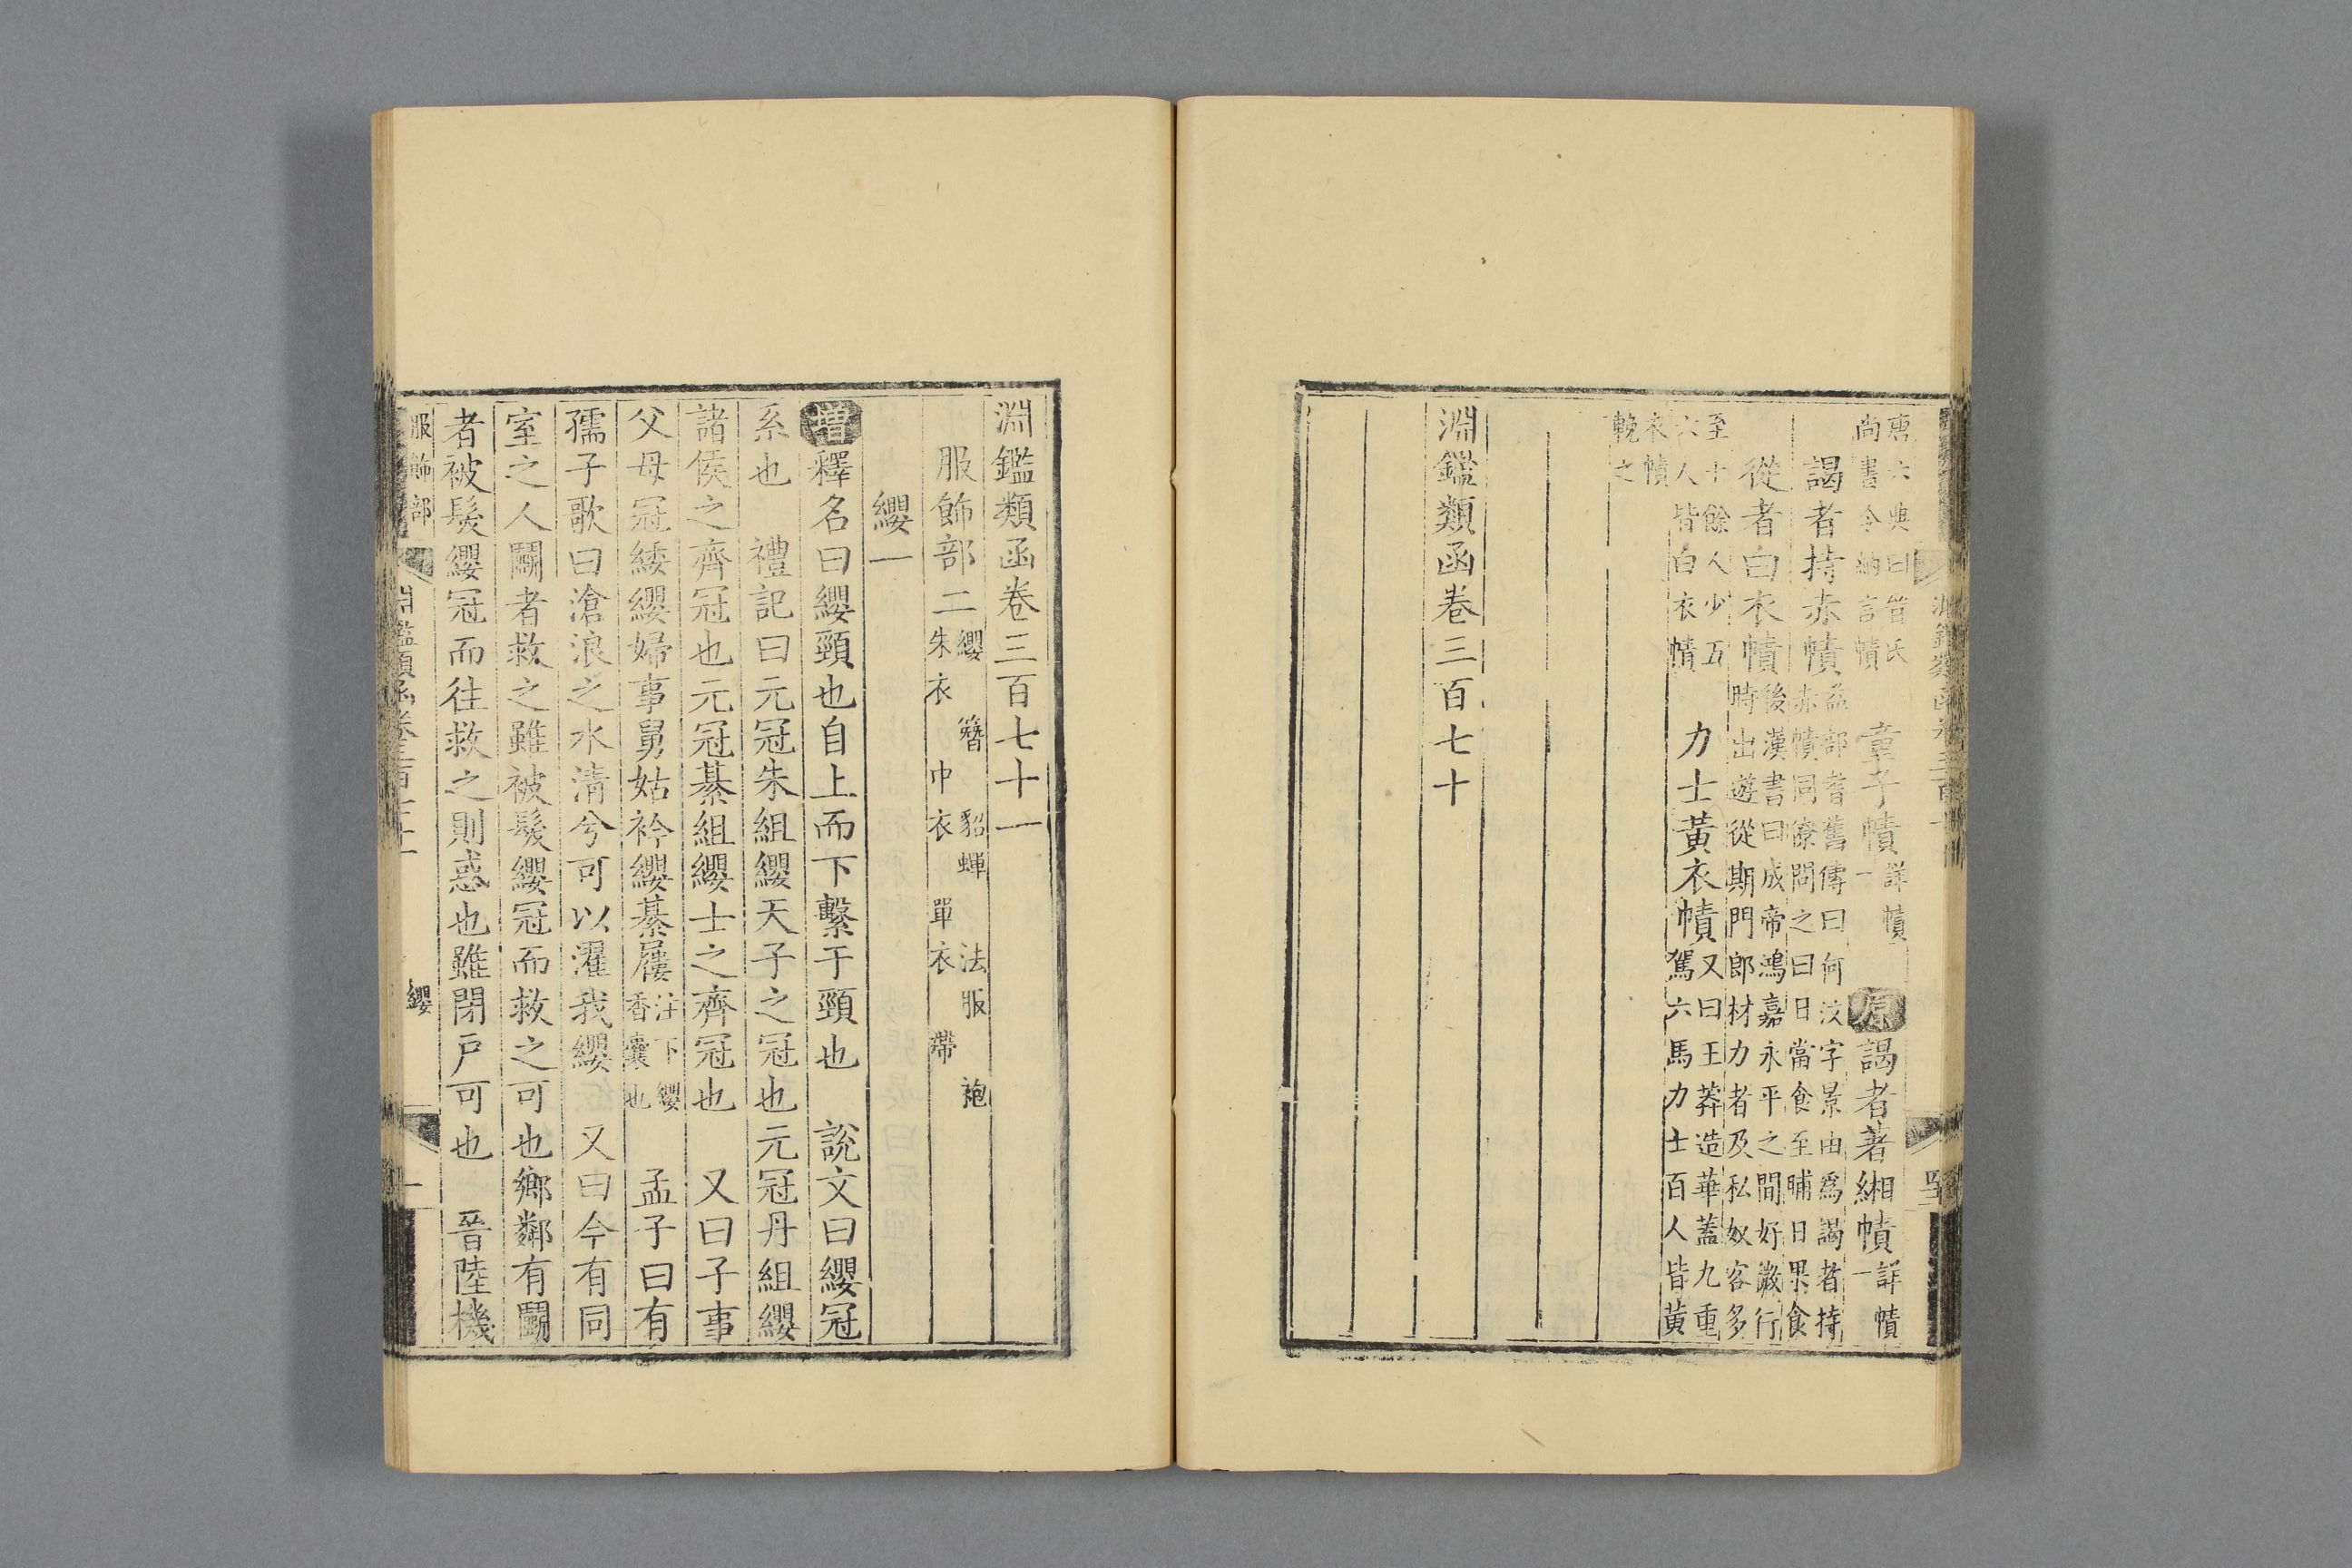 唐六典曰管氏
尚書令納言幘
童子幘
詳幘
一
原謁者著緗幘
詳幘
一
謁者持赤幘
益部耆舊傳曰何汶字景由為謁者持
赤幘同僚問之曰日當食至晡日果食
從者白衣幘
後漢書曰成帝鴻嘉永平之間好微行
時出遊從期門郎材力者及私奴客多
至十餘人少五
六人皆白衣幘
力士黃衣幘
又曰王莽造華蓋九重
駕六馬力士百人皆黃
衣幘
輓之
淵鑑類函卷三百七十
淵鑑類函卷三百七十一
服飾部二
纓 簪 貂蟬 法服 袍
朱衣 巾衣 單衣 帶
纓一
增釋名曰纓頸也自上而下繫于頸也 說文曰纓冠
系也 禮記曰元冠朱組纓天子之冠也元冠丹組纓
諸侯之齊冠也元冠綦組纓士之齊冠也 又曰子事
父母冠緌纓婦事舅姑衿纓綦屨
注下纓
香囊也
孟子曰有
孺子歌曰滄浪之水清兮可以濯我纓 又曰今有同
室之人鬬者救之雖被髮纓冠而救之可也鄉鄰有鬬
者被髮纓冠而往救之則惑也雖閉戶可也 晉陸機
服飾部
淵鑑類函卷三百七十一
纓
一